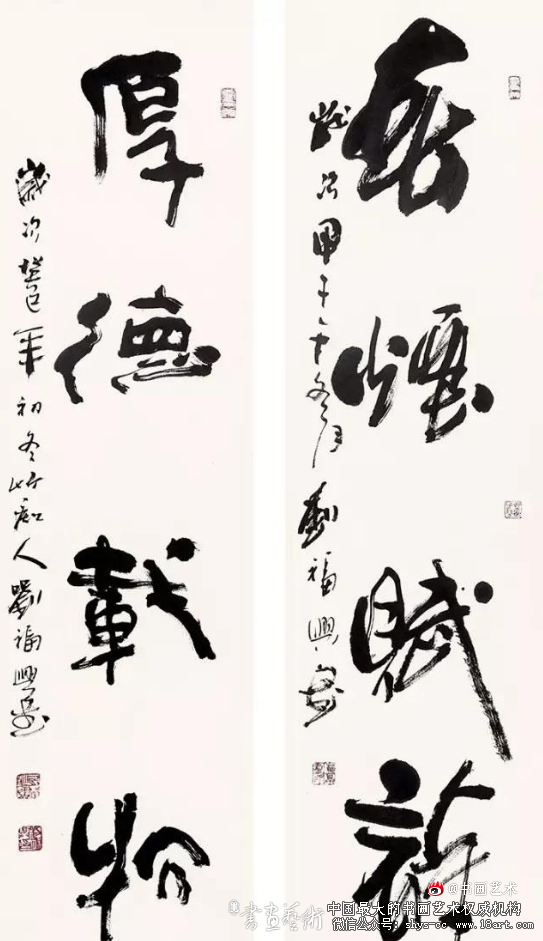 煙賦詩
歲次甲午年冬月劉福興書
厚德載物
歲次癸巳年初冬竹人劉福興書
書畫藝術
@书画艺术
中国最大的书画艺术权威机构
微信公众号：shyc-cc www.18art.com